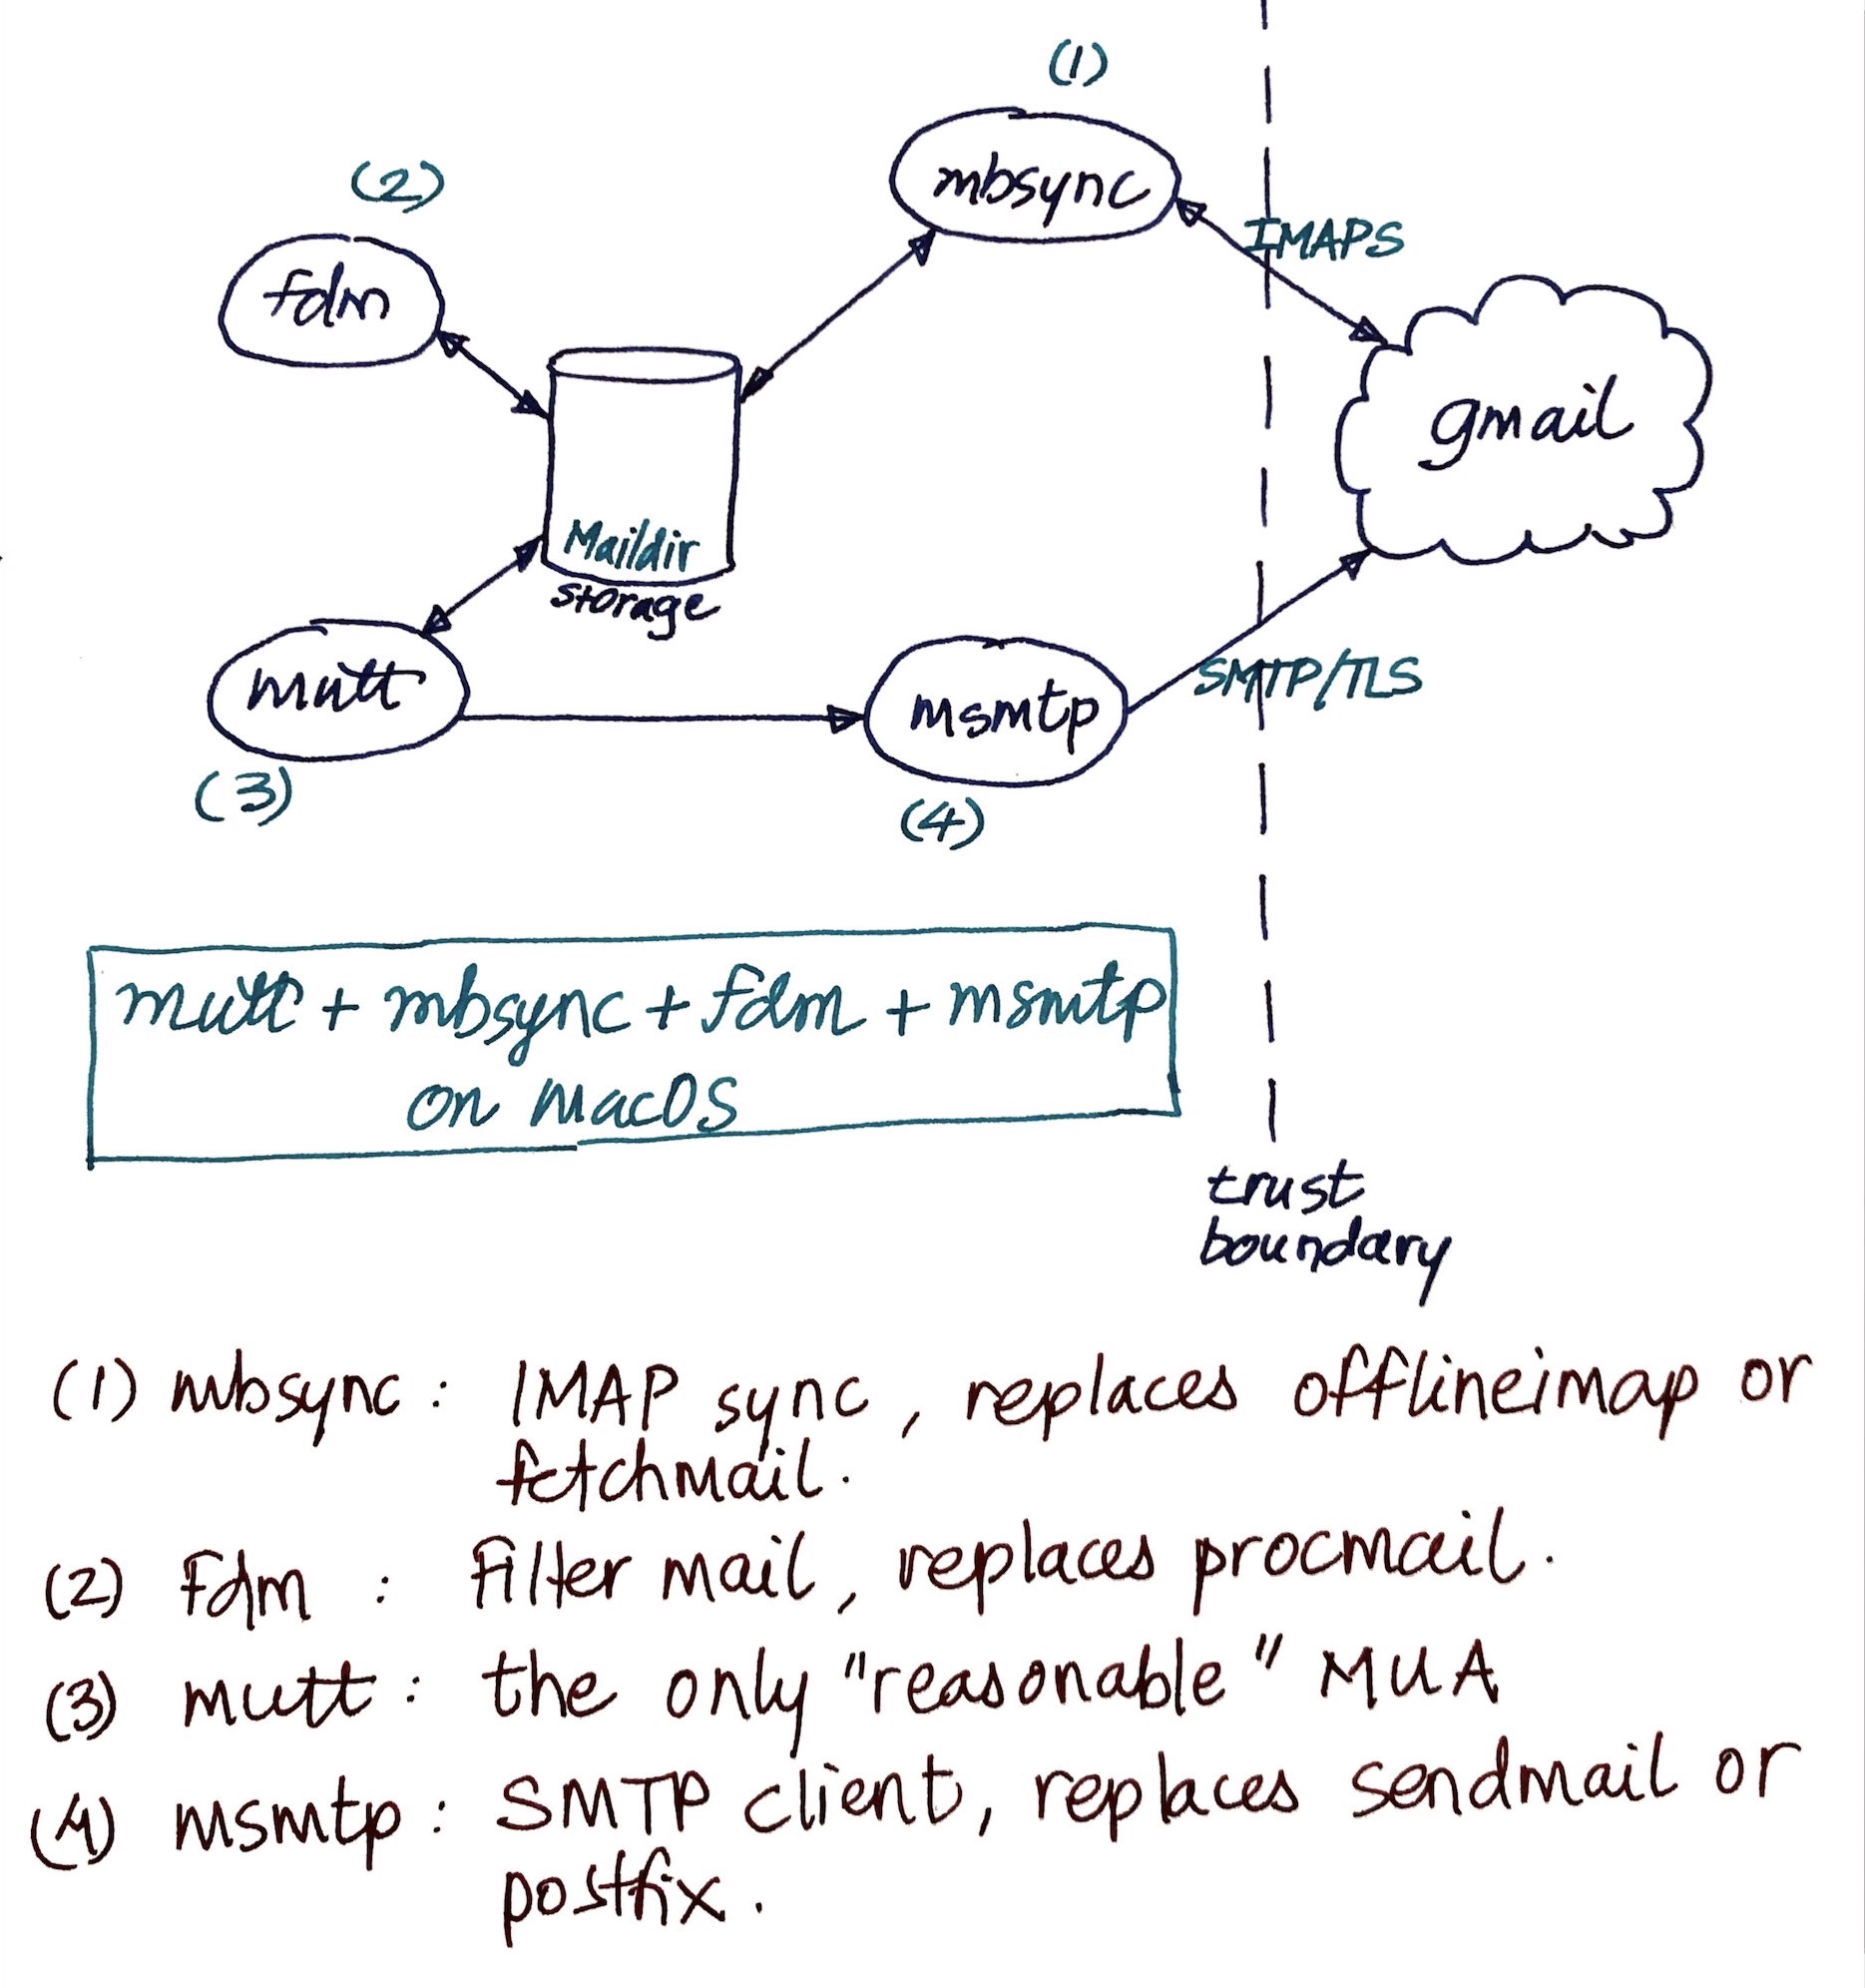 (1)
mbsync
(2)
fdm
IMAPS
gmail
Maildir
storage
mutt
(3)
msmtp
(4)
SMTP/TLS
mutt + mbsync + fdm + msmtp
on MacOS
trust
boundary
(1) mbsync : IMAP sync, replaces offlineimap or
fetchmail.
(2) fdm : filter mail, replaces procmail.
(3) mutt : the only "reasonable" MUA
(4) msmtp : SMTP client, replaces sendmail or
postfix.